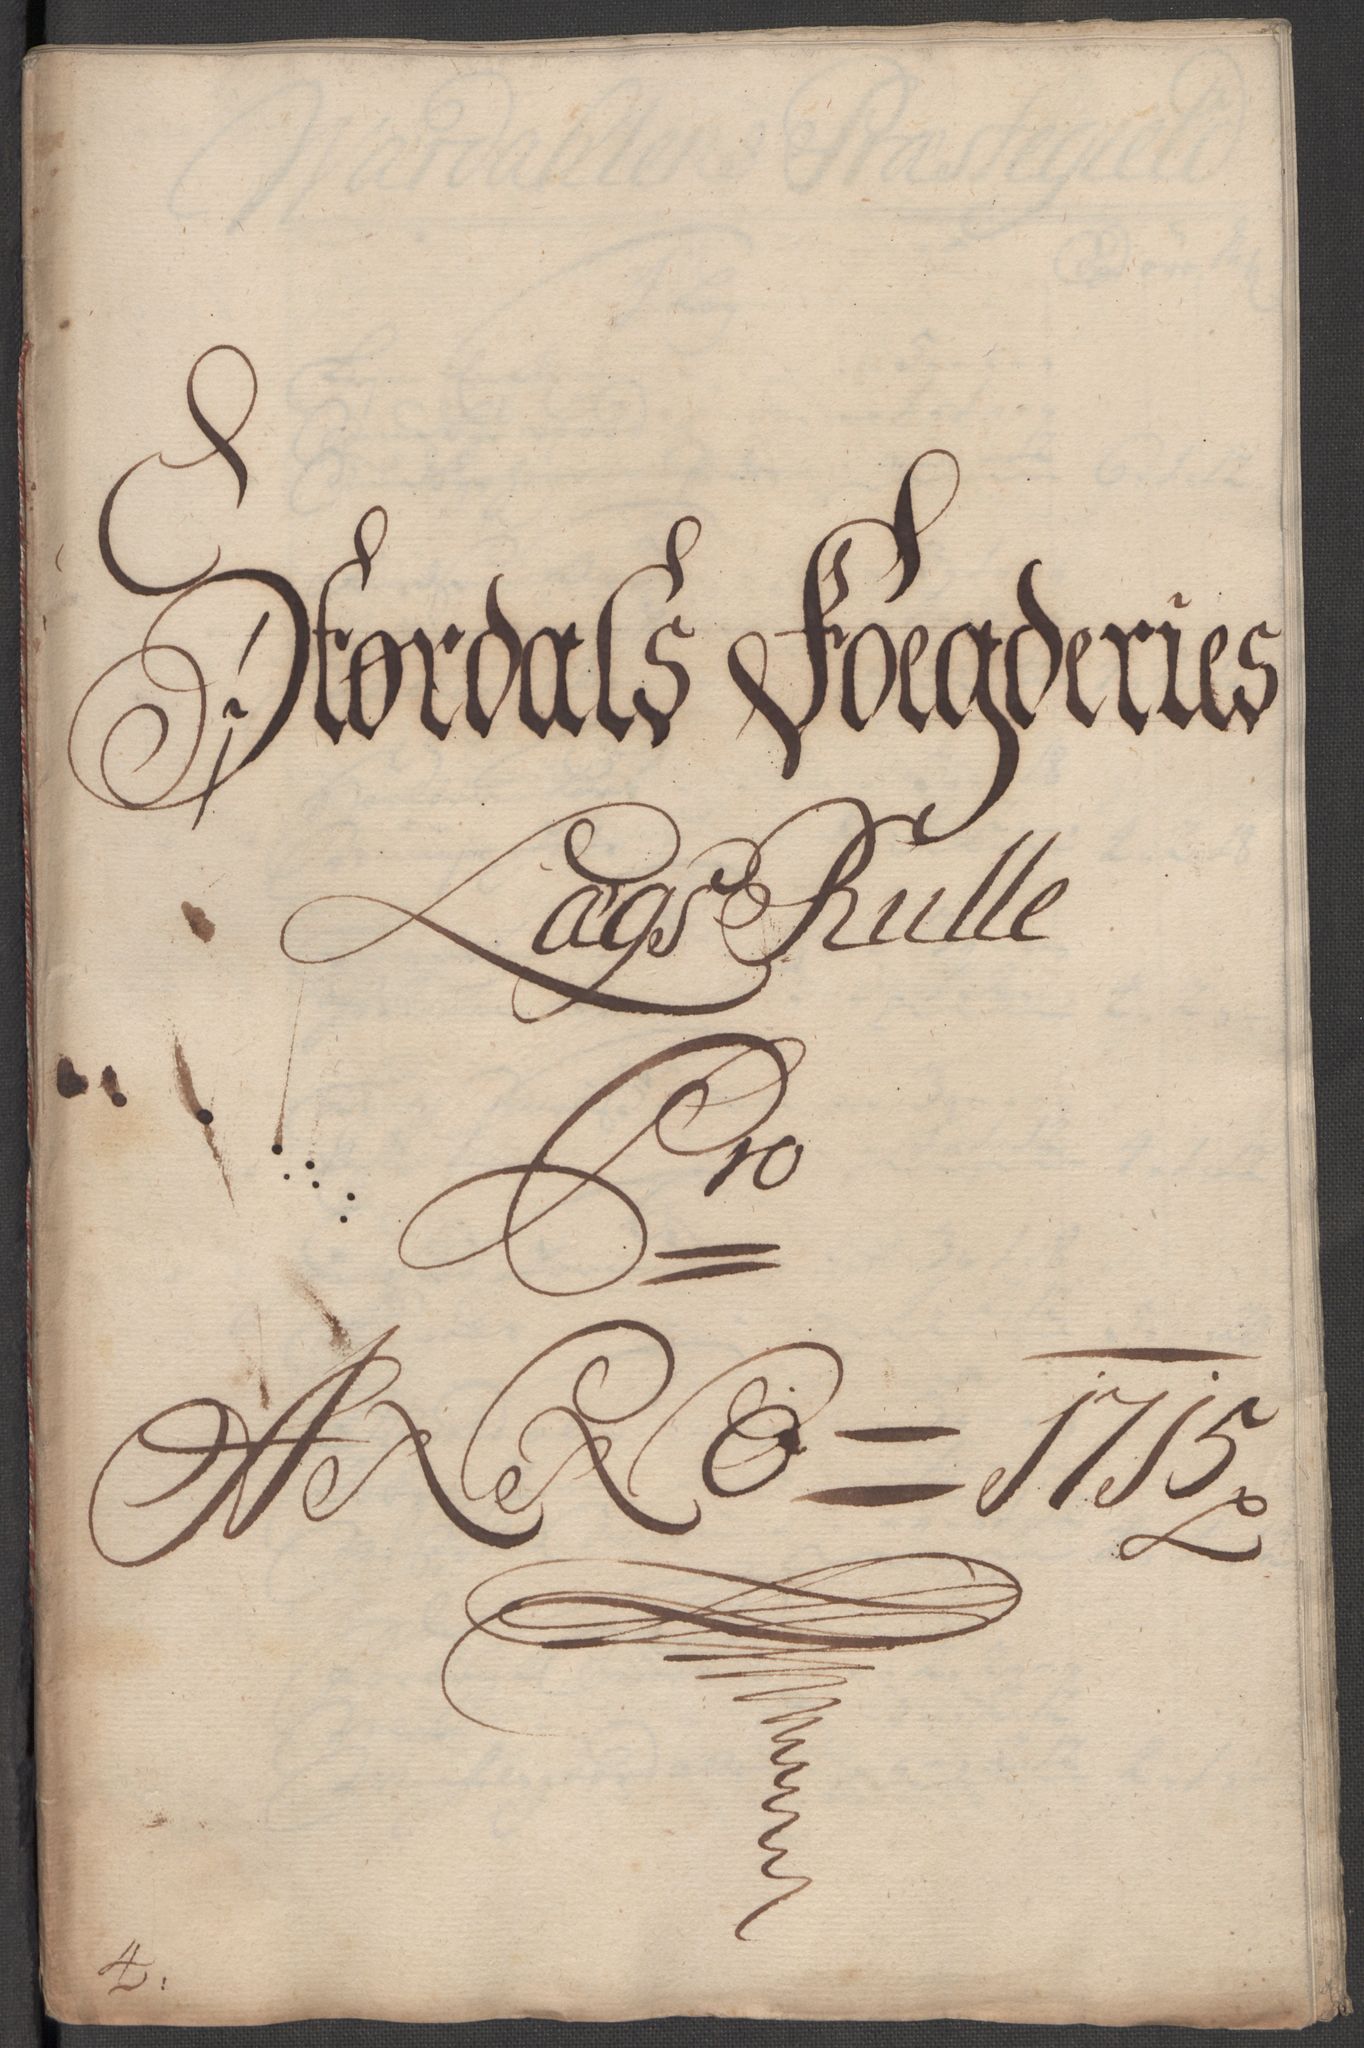 Størdals Foegderies
Lags Rulle
Pro
ANNO = 1715
4.